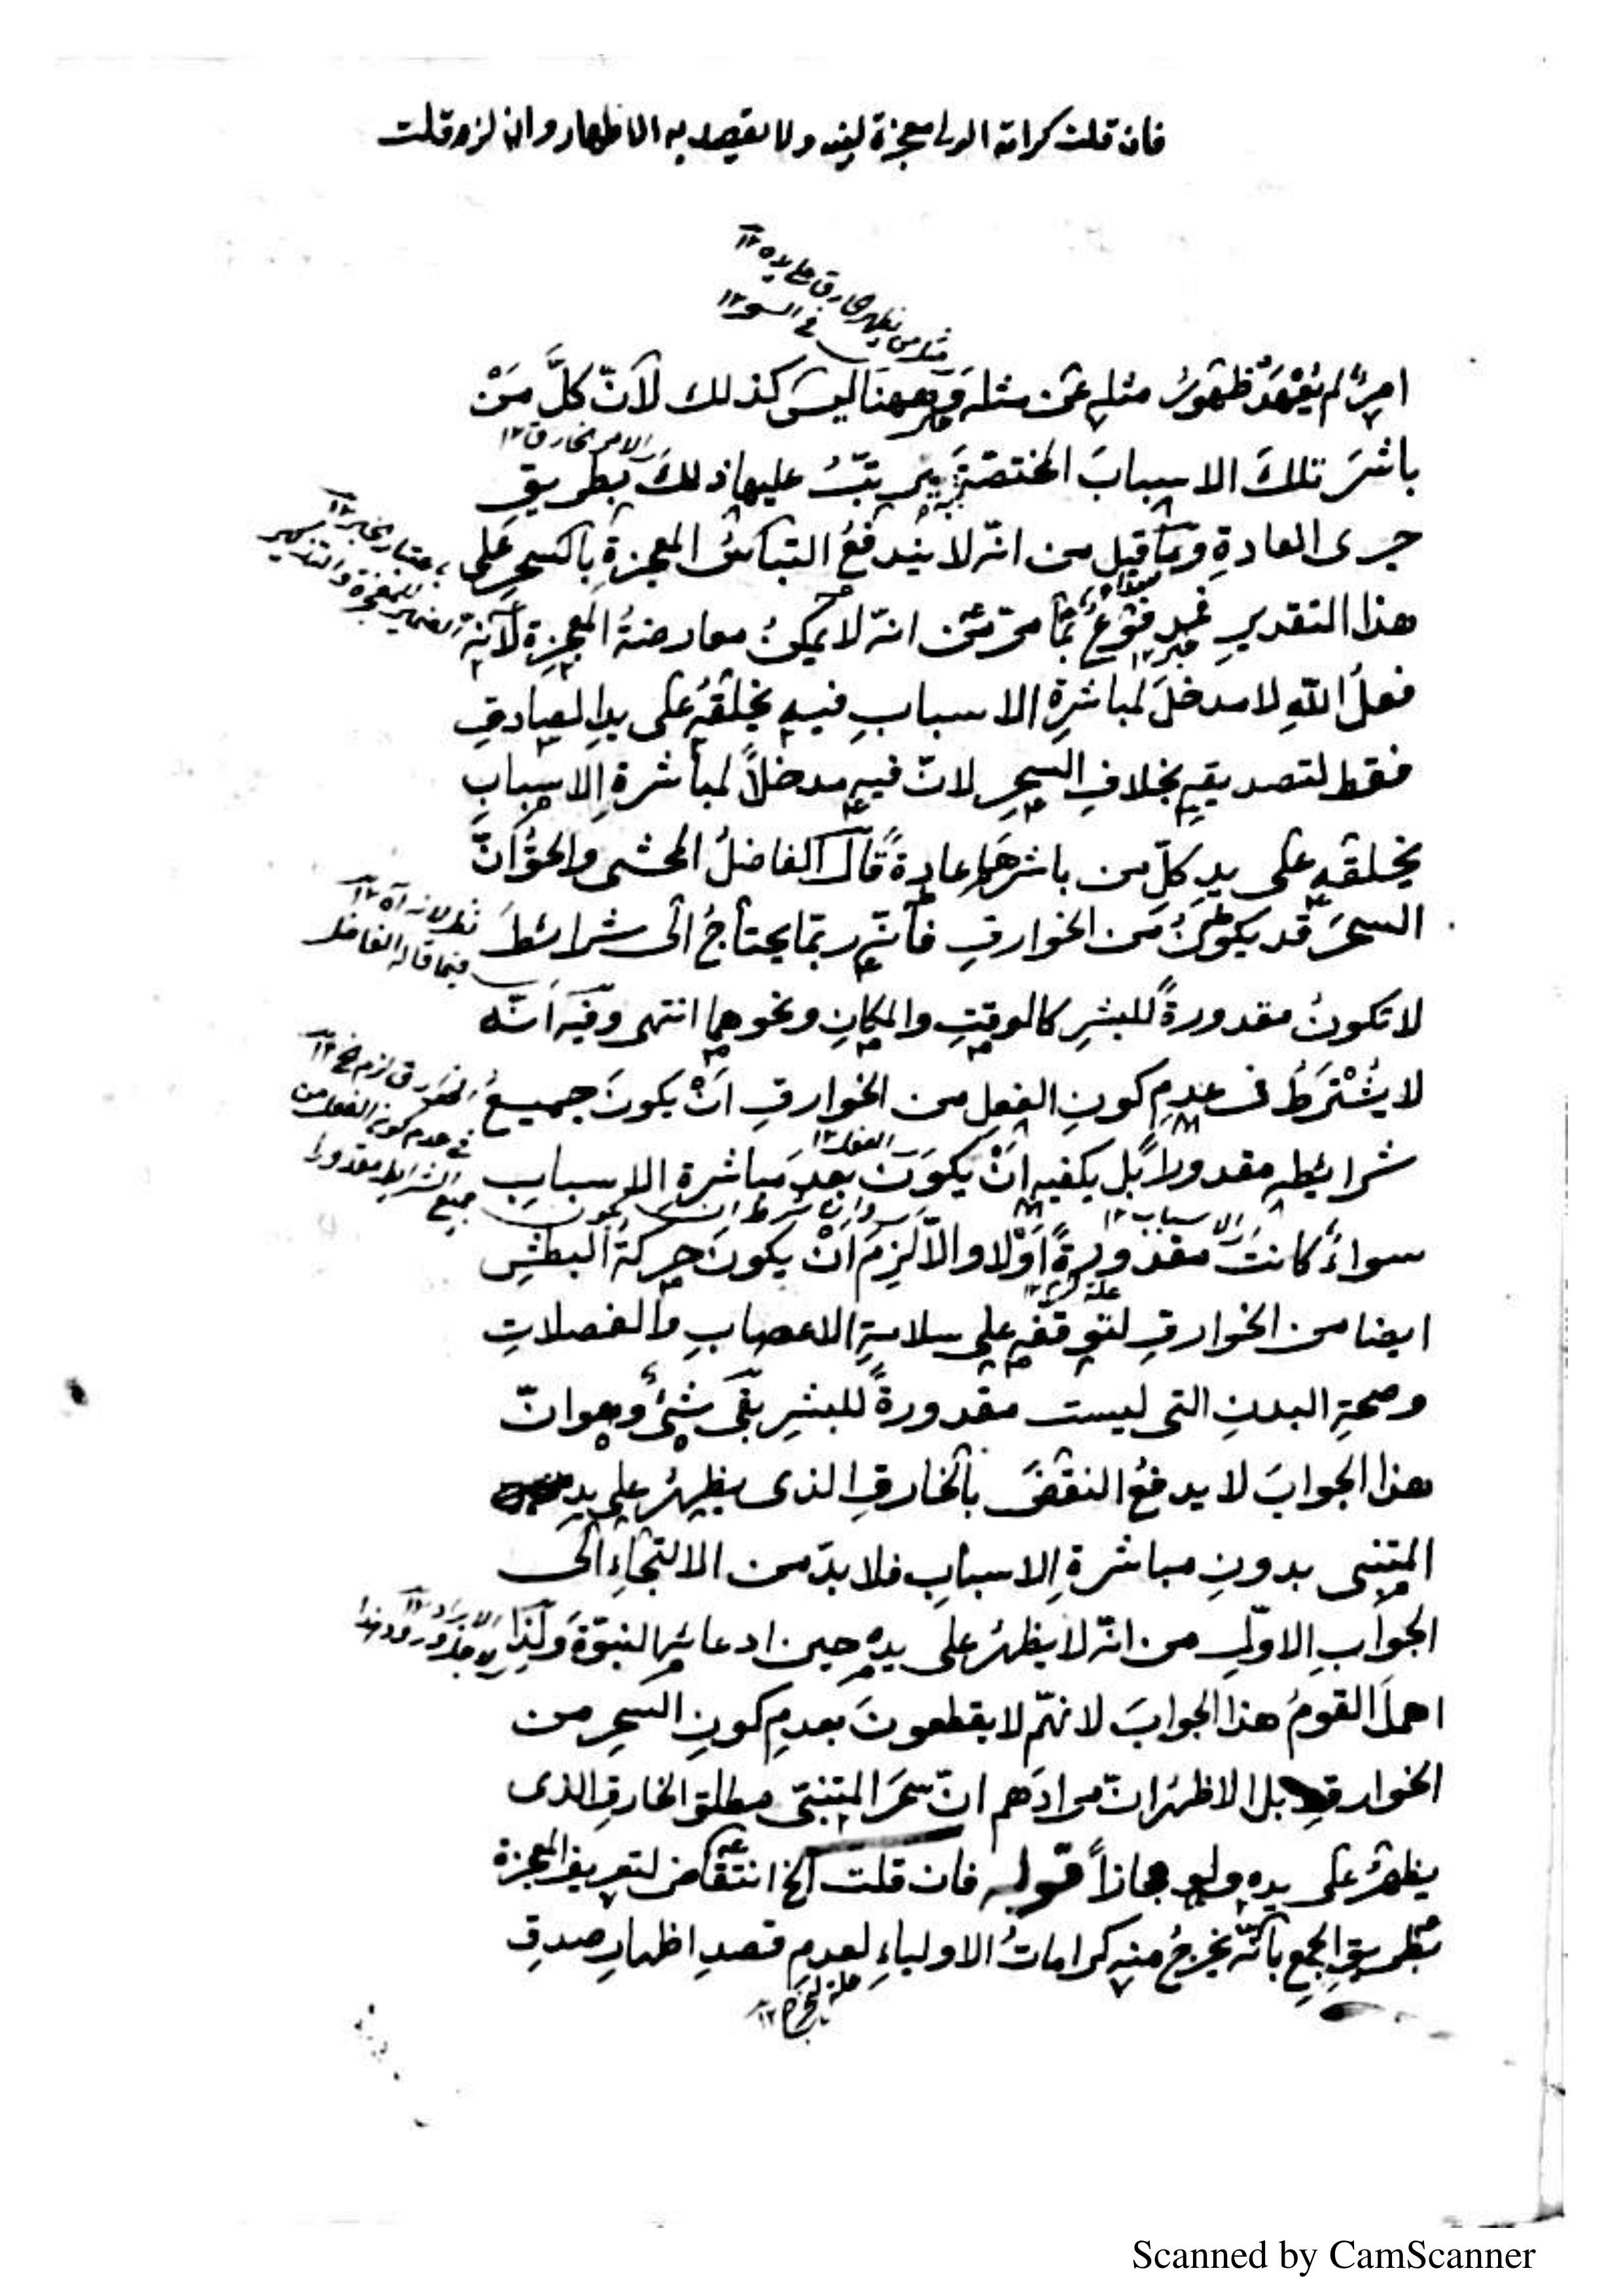 فان قلت كرامة الولى معجزة لنبيه ولا يقصد به الاظهار وان لزم قلت
امرٌ لم يُعْهَدْ ظهورُ مثلِه عمّن مثلَه وههنا ليسَ كذلك لأنّ كلَّ مَنْ
الامر الخارق ١٢
باشرَ تلكَ الاسبابَ المختصّةَ يترتّبُ عليها ذلكَ بطريقِ
جرى العادةِ وما قيل من انّه لا يندفعُ التباسُ المعجزةِ بالسحرِ على
هذا التقديرِ مدفوعٌ بما مرّ من انّه لا يمكنُ معارضةُ المعجزةِ لأنّه
خبر ١٢
فعلُ اللهِ لا مدخلَ لمباشرةِ الاسبابِ فيه يخلقُه على يدِ الصادقِ
فقط لتصديقِه بخلافِ السحرِ لانّ فيه مدخلاً لمباشرةِ الاسبابِ
يخلقُه على يدِ كلِّ من باشرها عادةً قال الفاضلُ المحشى والحقُّ انّ
السحرَ قد يكونُ من الخوارقِ فانّه ربّما يحتاجُ الى شرائطَ
فيما قاله الفاضل
لا تكونُ مقدورةً للبشرِ كالوقتِ والمكانِ ونحوهما انتهى وفيه انّه
لا يُشْتَرَطُ فى عدمِ كونِ الفعلِ من الخوارقِ انْ يكونَ جميعُ
فى عدم كون الفعل من
جميع الشرائط مقدورا
شرائطِه مقدوراً بل يكفيه انْ يكونَ بعد مباشرةِ الاسبابِ
الاسباب ١٢
سواءٌ كانتْ مقدورةً اَوْلا والاّ لزِمَ انْ يكونَ حركةُ البطشِ
ايضا من الخوارقِ لتوقفِه على سلامةِ الاعصابِ والعضلاتِ
وصحّةِ البدنِ التى ليست مقدورةً للبشرِ بقى شئٌ وهو انّ
هذا الجوابَ لا يدفعُ النقضَ بالخارقِ الذى يظهرُ على يدِ
المتنبى بدونِ مباشرةِ الاسبابِ فلا بدّ من الالتجاءِ الى
الجوابِ الاوّلِ من انّه لا يظهرُ على يدِه حين ادعائِه النبوّةَ ولذا
اهملَ القومُ هذا الجوابَ لانهّم لا يقطعونَ بعدمِ كونِ السحرِ من
الخوارقِ بل الاظهرُ انّ مرادَهم انّ سحرَ المتنبّى مطلق الخارق الذى
يظهرُ على يدِه ولو مجازاً قوله فان قلت الخ انتقاضٌ لتعريف المعجزة
بطريقِ الجمعِ بانّه يخرجُ منه كراماتُ الاولياءِ لعدمِ قصدِ اظهارِ صدقِ
علة لخرج ١٢
Scanned by CamScanner